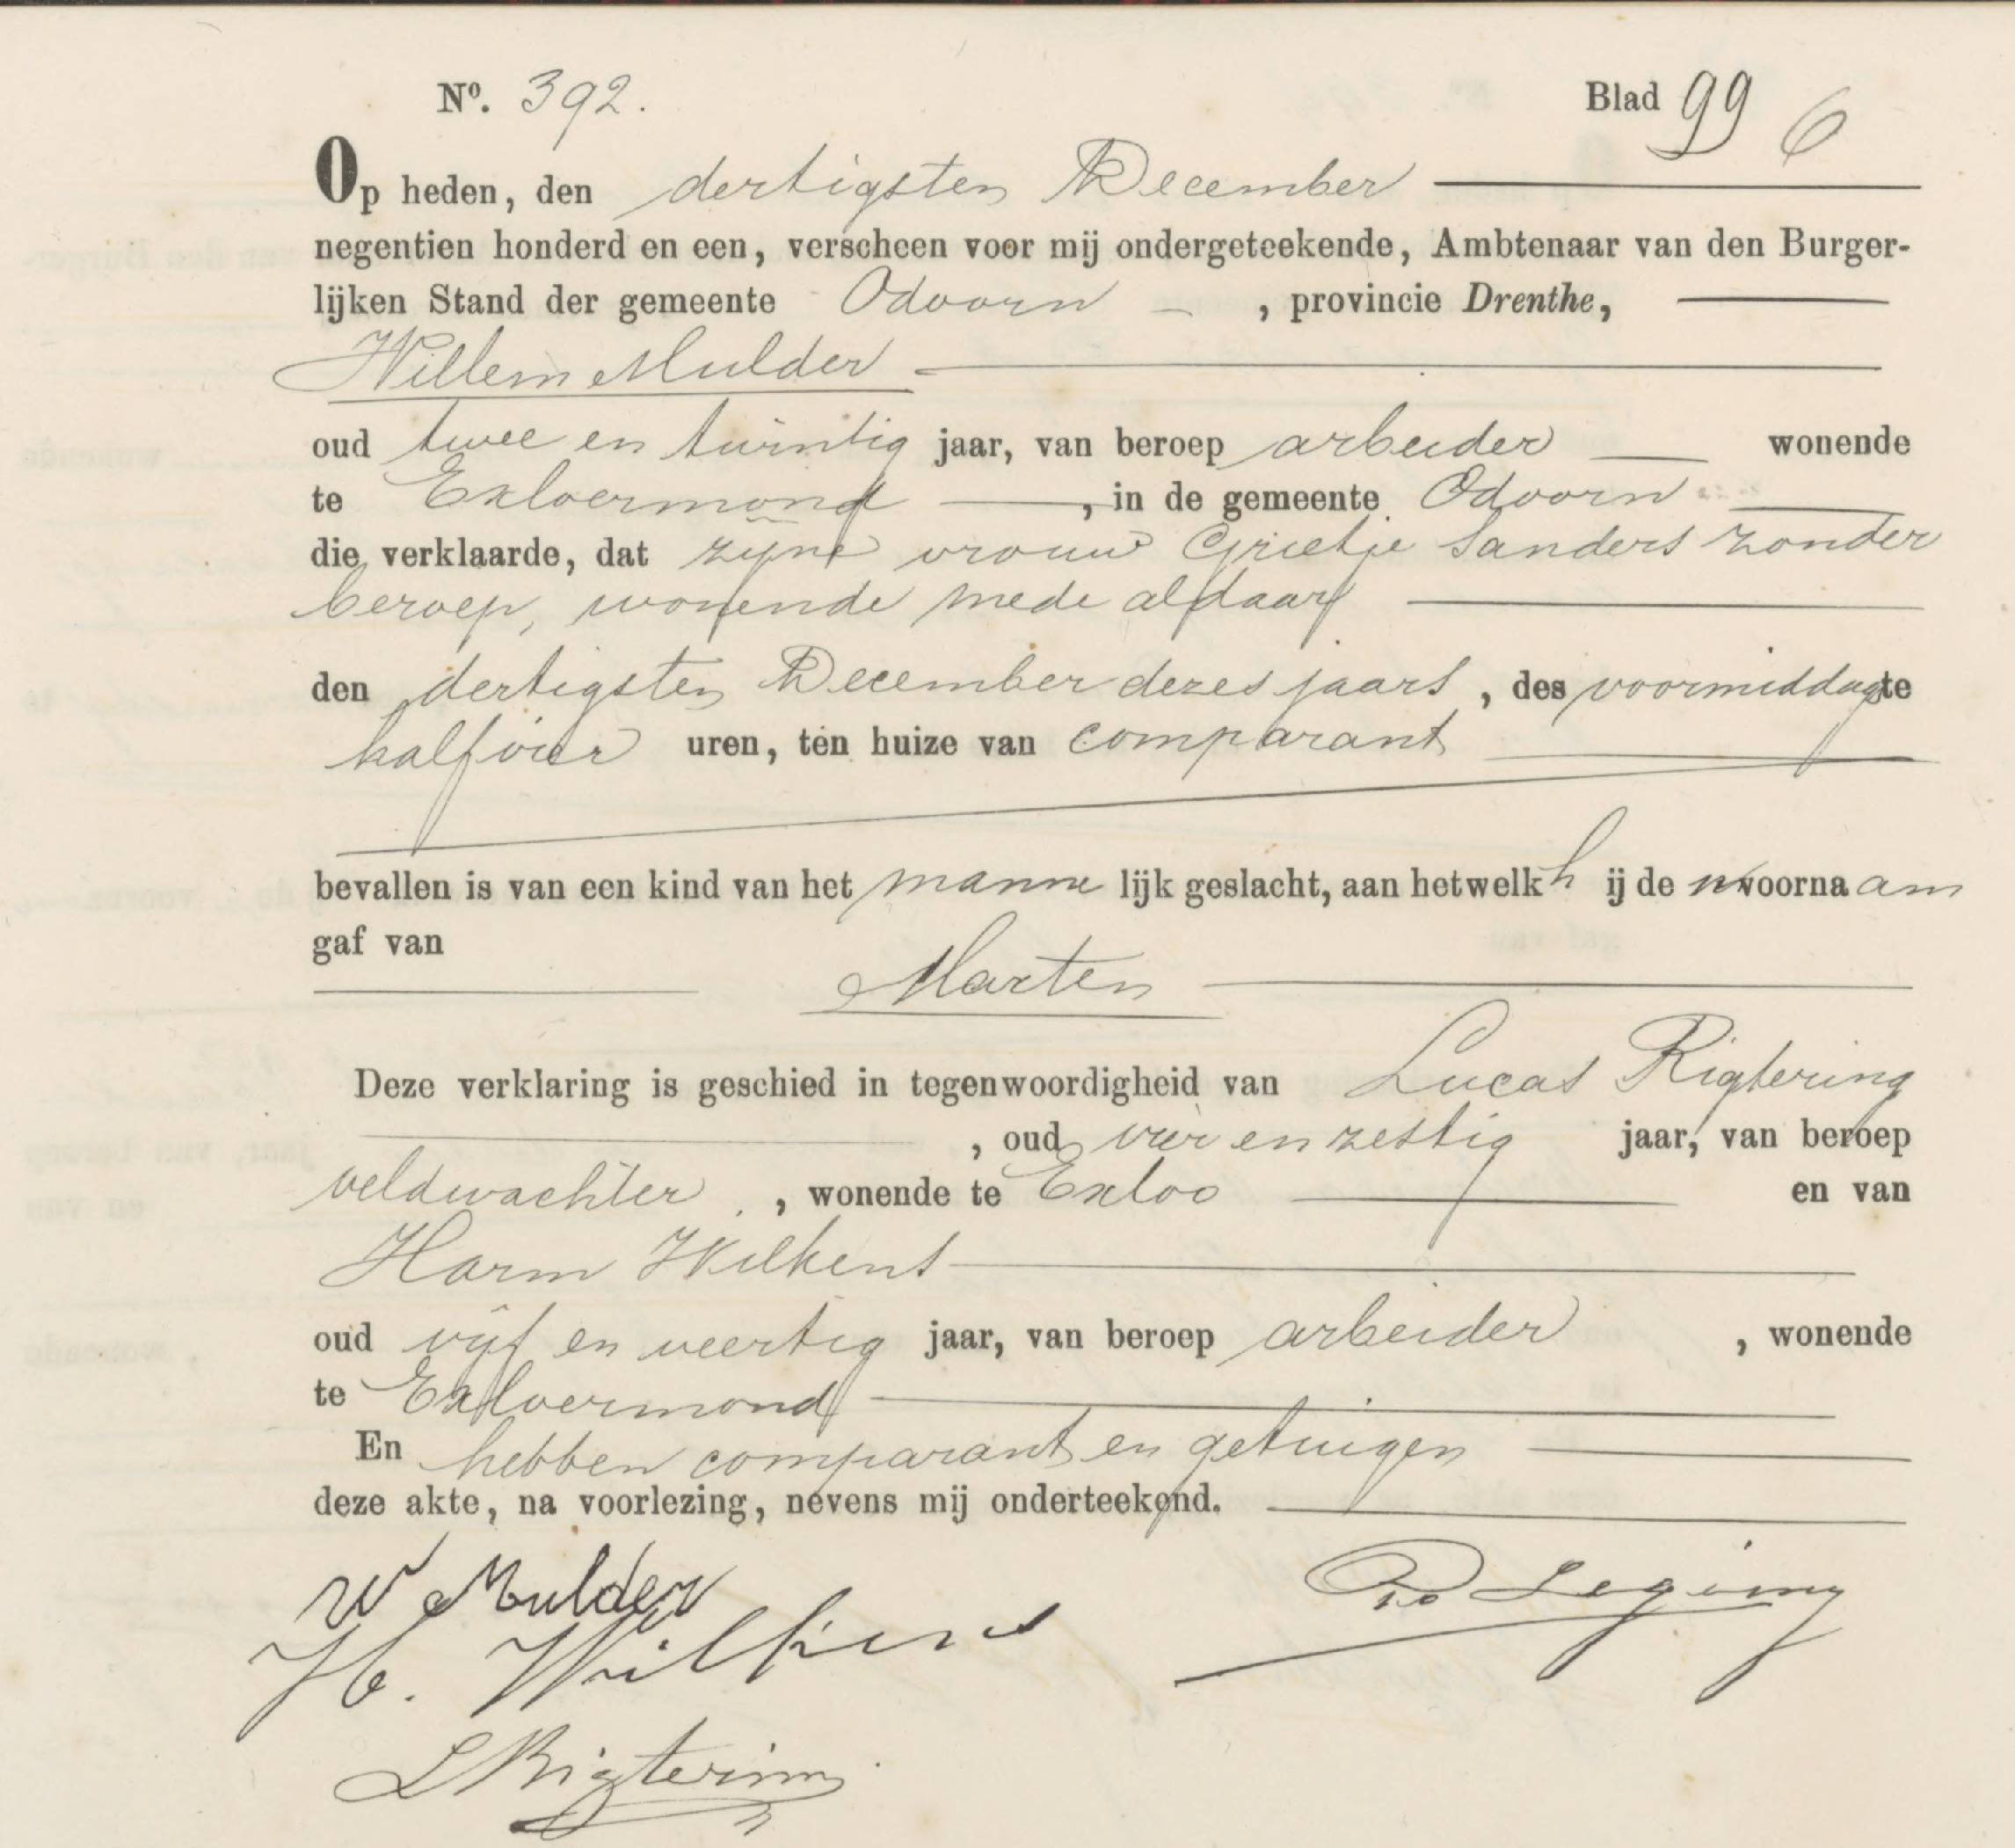 Nº. 392. Blad 99
Op heden, den dertigsten December
negentien honderd en een, verscheen voor mij ondergeteekende, Ambtenaar van den Burger-
lijken Stand der gemeente Odoorn, provincie Drenthe,
Willem Mulder
oud twee en twintig jaar, van beroep arbeider wonende
te Exloermond, in de gemeente Odoorn
die verklaarde, dat zijne vrouw Grietje Sanders zonder
beroep, wonende mede aldaar
den dertigsten December dezes jaars, des voormiddags te
halfvier uren, ten huize van comparant
bevallen is van een kind van het mannelijk geslacht, aan hetwelk hij de voornaam
gaf van
Marten
Deze verklaring is geschied in tegenwoordigheid van Lucas Rigtering
, oud vier en zestig jaar, van beroep
veldwachter, wonende te Exloo en van
Harm Wilkens
oud vijf en veertig jaar, van beroep arbeider, wonende
te Exloermond
En hebben comparant en getuigen
deze akte, na voorlezing, nevens mij onderteekend.
W Mulder
H. Wilkens
L Rigtering